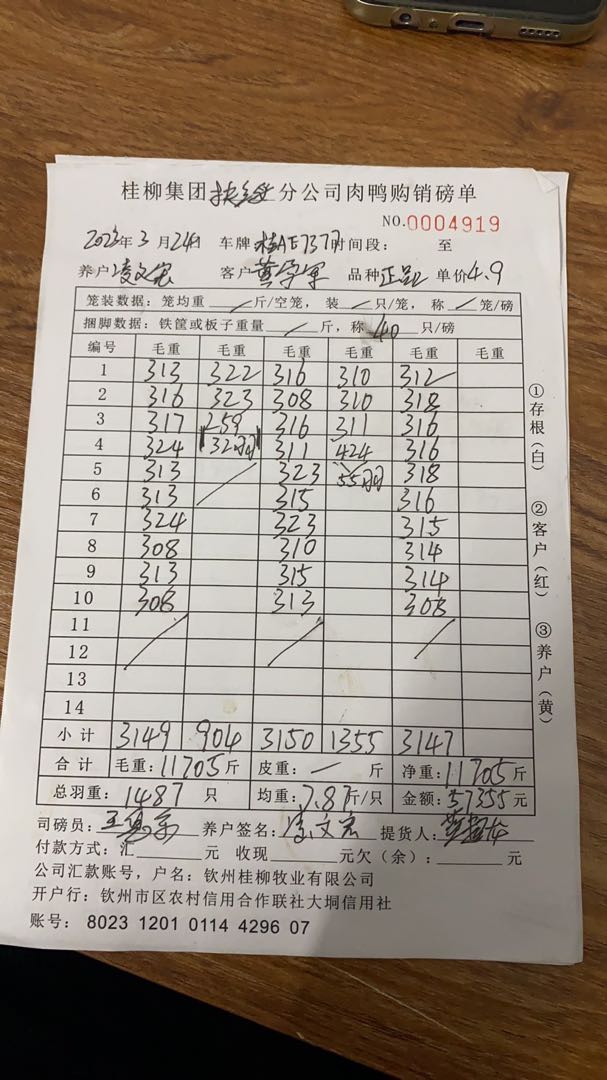 桂柳集团扶绥分公司肉鸭购销磅单
NO.0004919
2023年3月24日 车牌桂AE7377时间段： 至
养户凌文宏 客户黄 军 品种正品 单价4.9
笼装数据：笼均重 / 斤/空笼，装 / 只/笼，称 / 笼/磅
捆脚数据：铁筐或板子重量 / 斤，称 40 只/磅
编号 毛重 毛重 毛重 毛重 毛重 毛重
1 313 322 316 310 312
2 316 323 308 310 318
3 317 259 316 311 316
4 324 32羽 311 424 316
5 313 323 55羽 318
6 313 315 316
7 324 323 315
8 308 310 314
9 313 315 314
10 308 313 308
11
12
13
14
小计 3149 904 3150 1355 3147
合计 毛重：11705斤 皮重：/ 斤 净重：11705斤
总羽重：1487 只 均重：7.87斤/只 金额：57355元
司磅员： 养户签名：凌文宏 提货人：
付款方式：汇 元 收现 元欠（余）： 元
公司汇款账号，户名：钦州桂柳牧业有限公司
开户行：钦州市区农村信用合作联社大垌信用社
账号：8023 1201 0114 4296 07
①存根（白）
②客户（红）
③养户（黄）